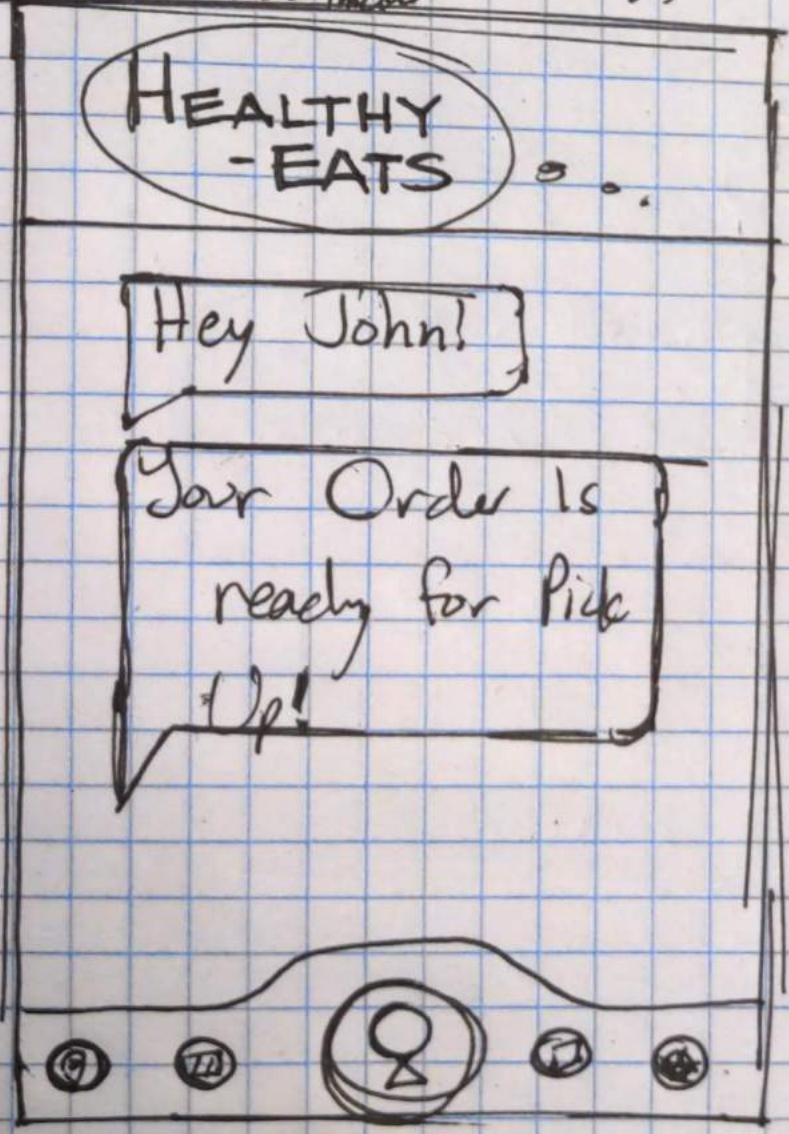 HEALTHY
-EATS
Hey John!
Your Order Is
ready for Pick
Up!